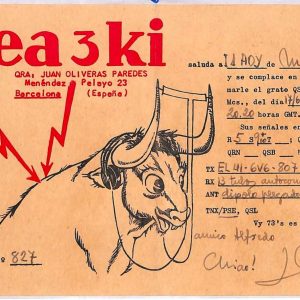 ea3ki
QRA, JUAN OLIVERAS PAREDES
Menéndez Pelayo 23
Barcelona (España)
saluda a I1AOY de
y se complace en
marle el grato QS
Mcs., del día
20.20 horas GMT.
Sus señales en
R 5 S 9
QRN QSB
TX EL41-6V6-807
RX
ANT dipolo
TNX/PSE, QSL
Vy 73's e
amico Alfredo
Chiao!
º 827